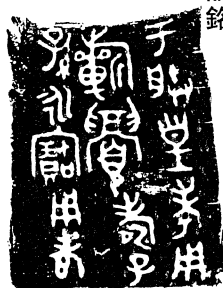 銘
于朕皇考用
眉壽子
孫永寶用享